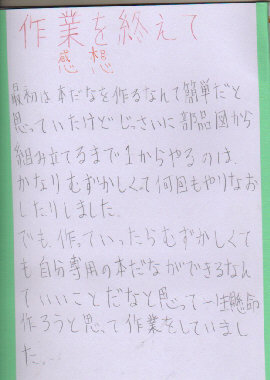 作業を終えて
感想
最初は本だなを作るなんて簡単だと
思っていたけどじっさいに部品図から
組み立てるまで1からやるのは、
かなりむずかしくて何回もやりなお
したりしました。
でも、作っていったらむずかしくて
も自分専用の本だなができるなん
ていいことだなと思って一生懸命
作ろうと思って作業をしていまし
た。